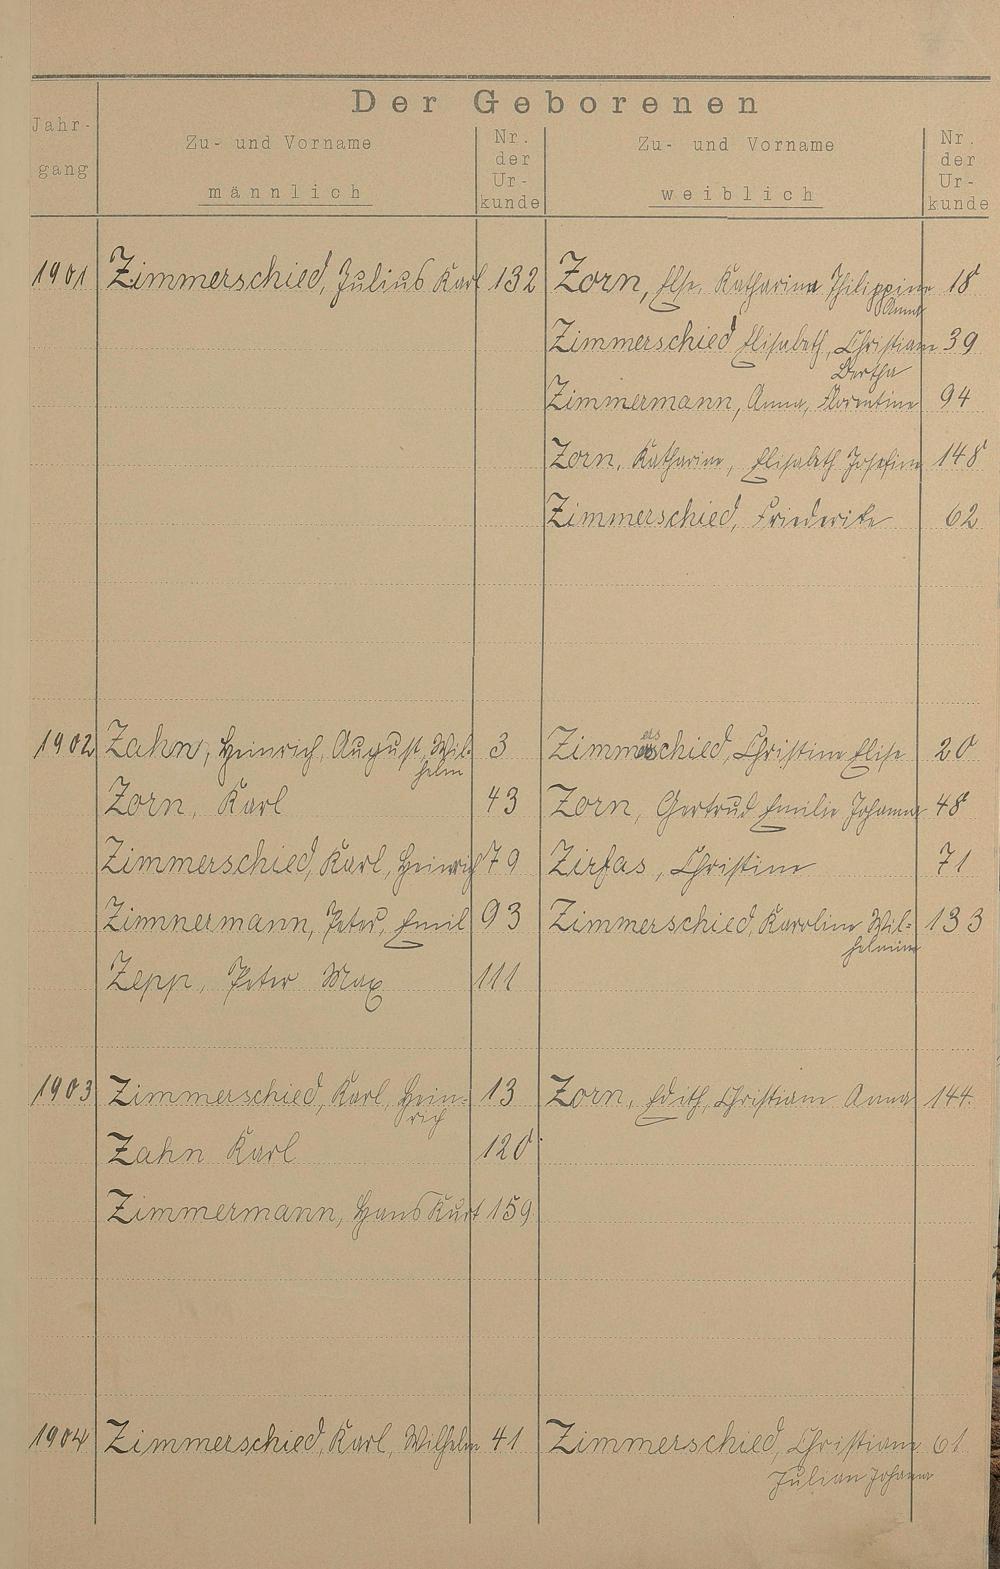 Der Geborenen
Jahr-
gang
Zu- und Vorname
männlich
Nr.
der
Ur-
kunde
Zu- und Vorname
weiblich
Nr.
der
Ur-
kunde
1901 Zimmerschied, Julius Karl 132 Zorn, Else, Katharina Philippine 18
Anna
Zimmerschied Elisabeth, Christiane 39
Bertha
Zimmermann, Anna, Florentine 94
Zorn, Katharine, Elisabeth Josefine 148
Zimmerschied, Friederike 62
1902 Zahn, Heinrich, August, Wil- 3 Zimmerschied, Christine Elise 20
helm
Zorn, Karl 43 Zorn, Gertrud Emilie Johanna 48
Zimmerschied, Karl, Heinrich 79 Zirfas, Christine 71
Zimmermann, Peter, Emil 93 Zimmerschied, Karoline Wil- 133
helmine
Zepp, Peter Max 111
1903 Zimmerschied, Karl, Hein- 13 Zorn, Edith, Christiane Anna 144
rich
Zahn Karl 120
Zimmermann, Hans Kurt 159
1904 Zimmerschied, Karl, Wilhelm 41 Zimmerschied, Christiane 61
Juliane Johanna